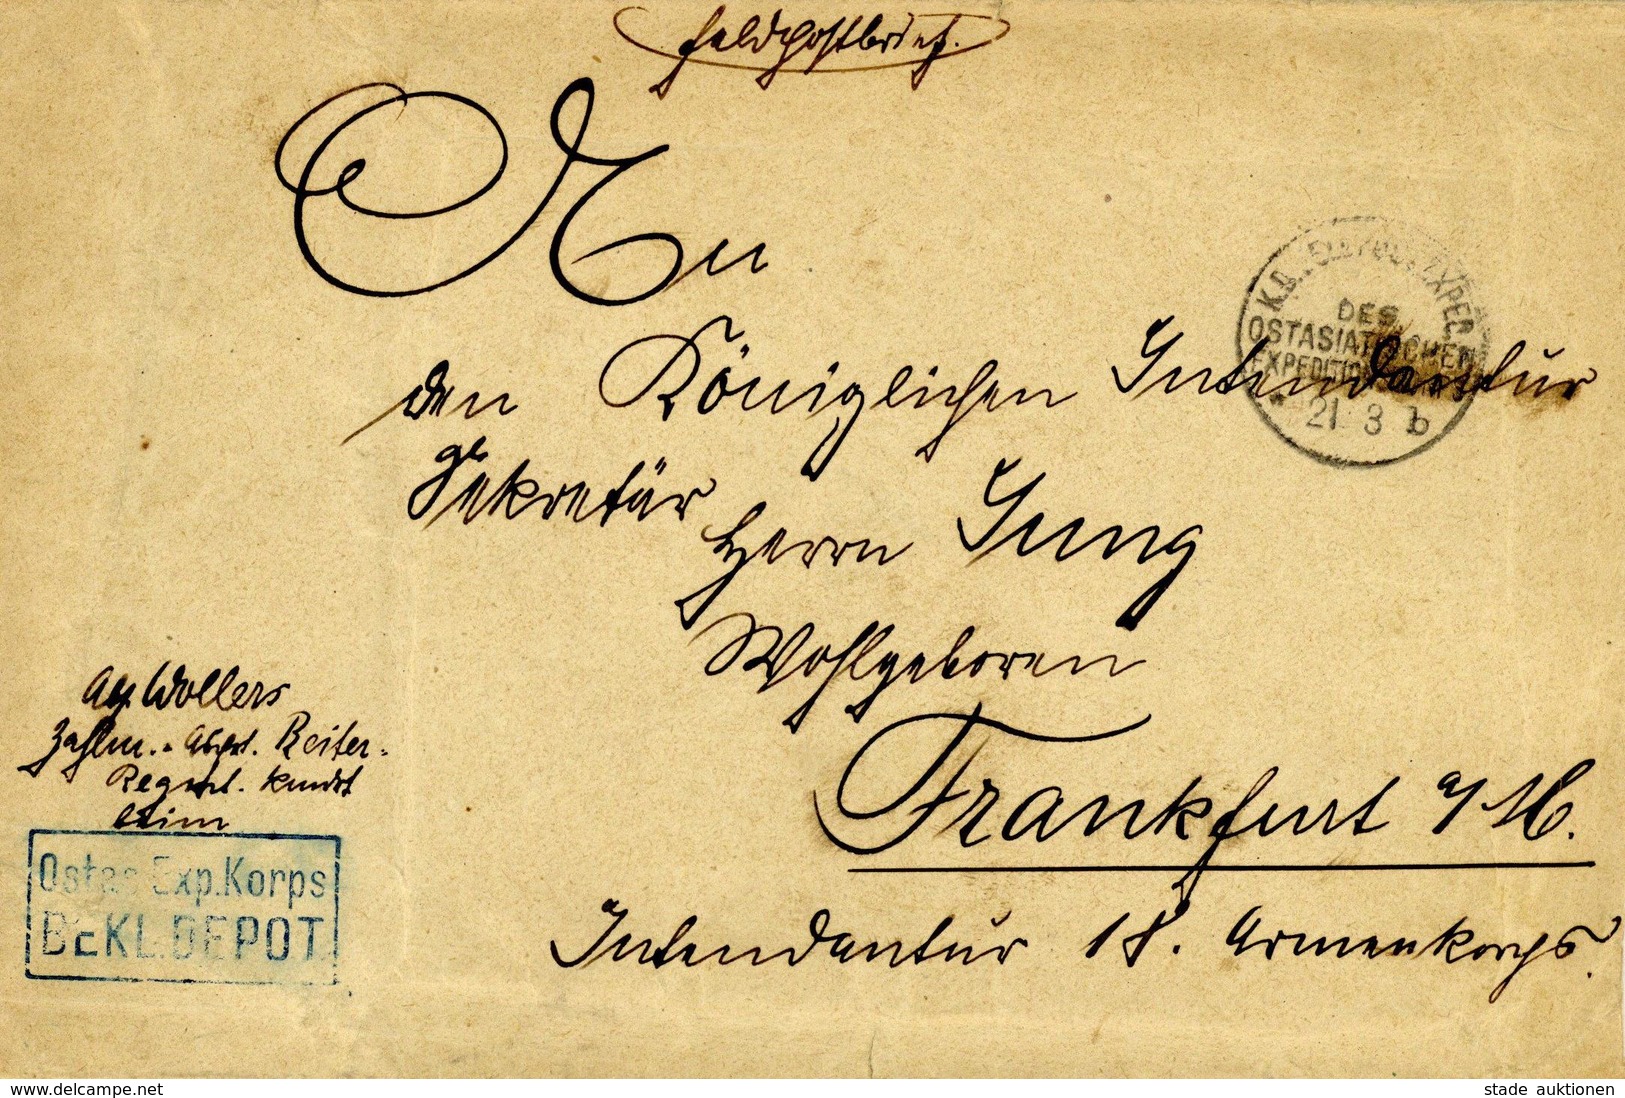 Feldpostbrief.
An
den Königlichen Intendantur
Sekretär
Herrn Jung
Wohlgeboren
Frankfurt a/M.
Intendantur 18. Armeekorps.
K.D. FELDPOSTEXPED
DES
OSTASIATISCHEN
EXPEDITIONSKORPS
21 3 b
Wollers
Zahlm. Reiter-
Regmt.
Ostas Exp.Korps
BEKL.DEPOT
www.delcampe.net
stade auktionen